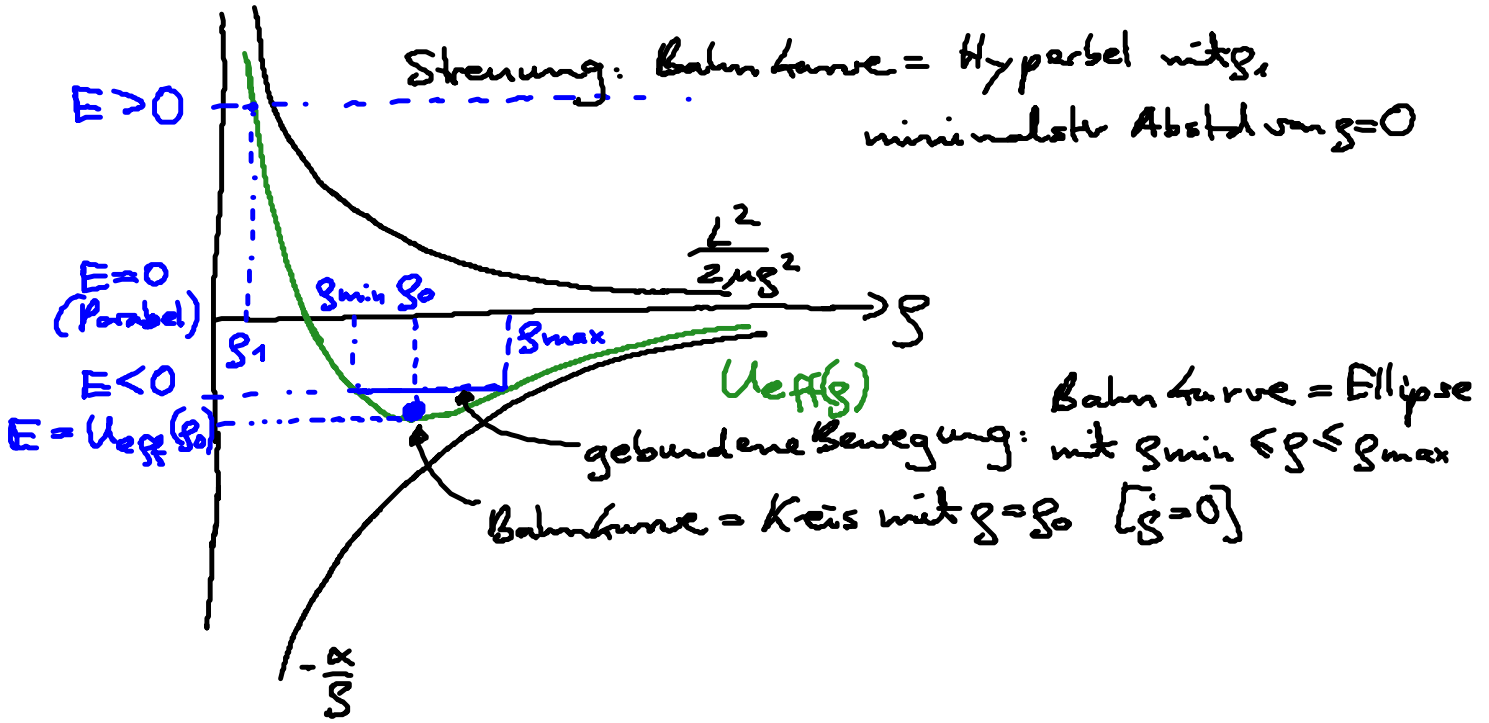 Streuung: Bahnkurve = Hyperbel mit ρ₁
E>0
minimalstr Abstd von ρ=0
L²
2μρ²
E=0
(Parabel)
ρmin ρ₀
ρ
ρ1
ρmax
E<0
Ueff(ρ)
Bahnkurve = Ellipse
E = Ueff(ρ₀)
gebundene Bewegung: mit ρmin ≤ ρ ≤ ρmax
Bahnkurve = Kreis mit ρ=ρ₀ [ρ̇=0]
-α
ρ